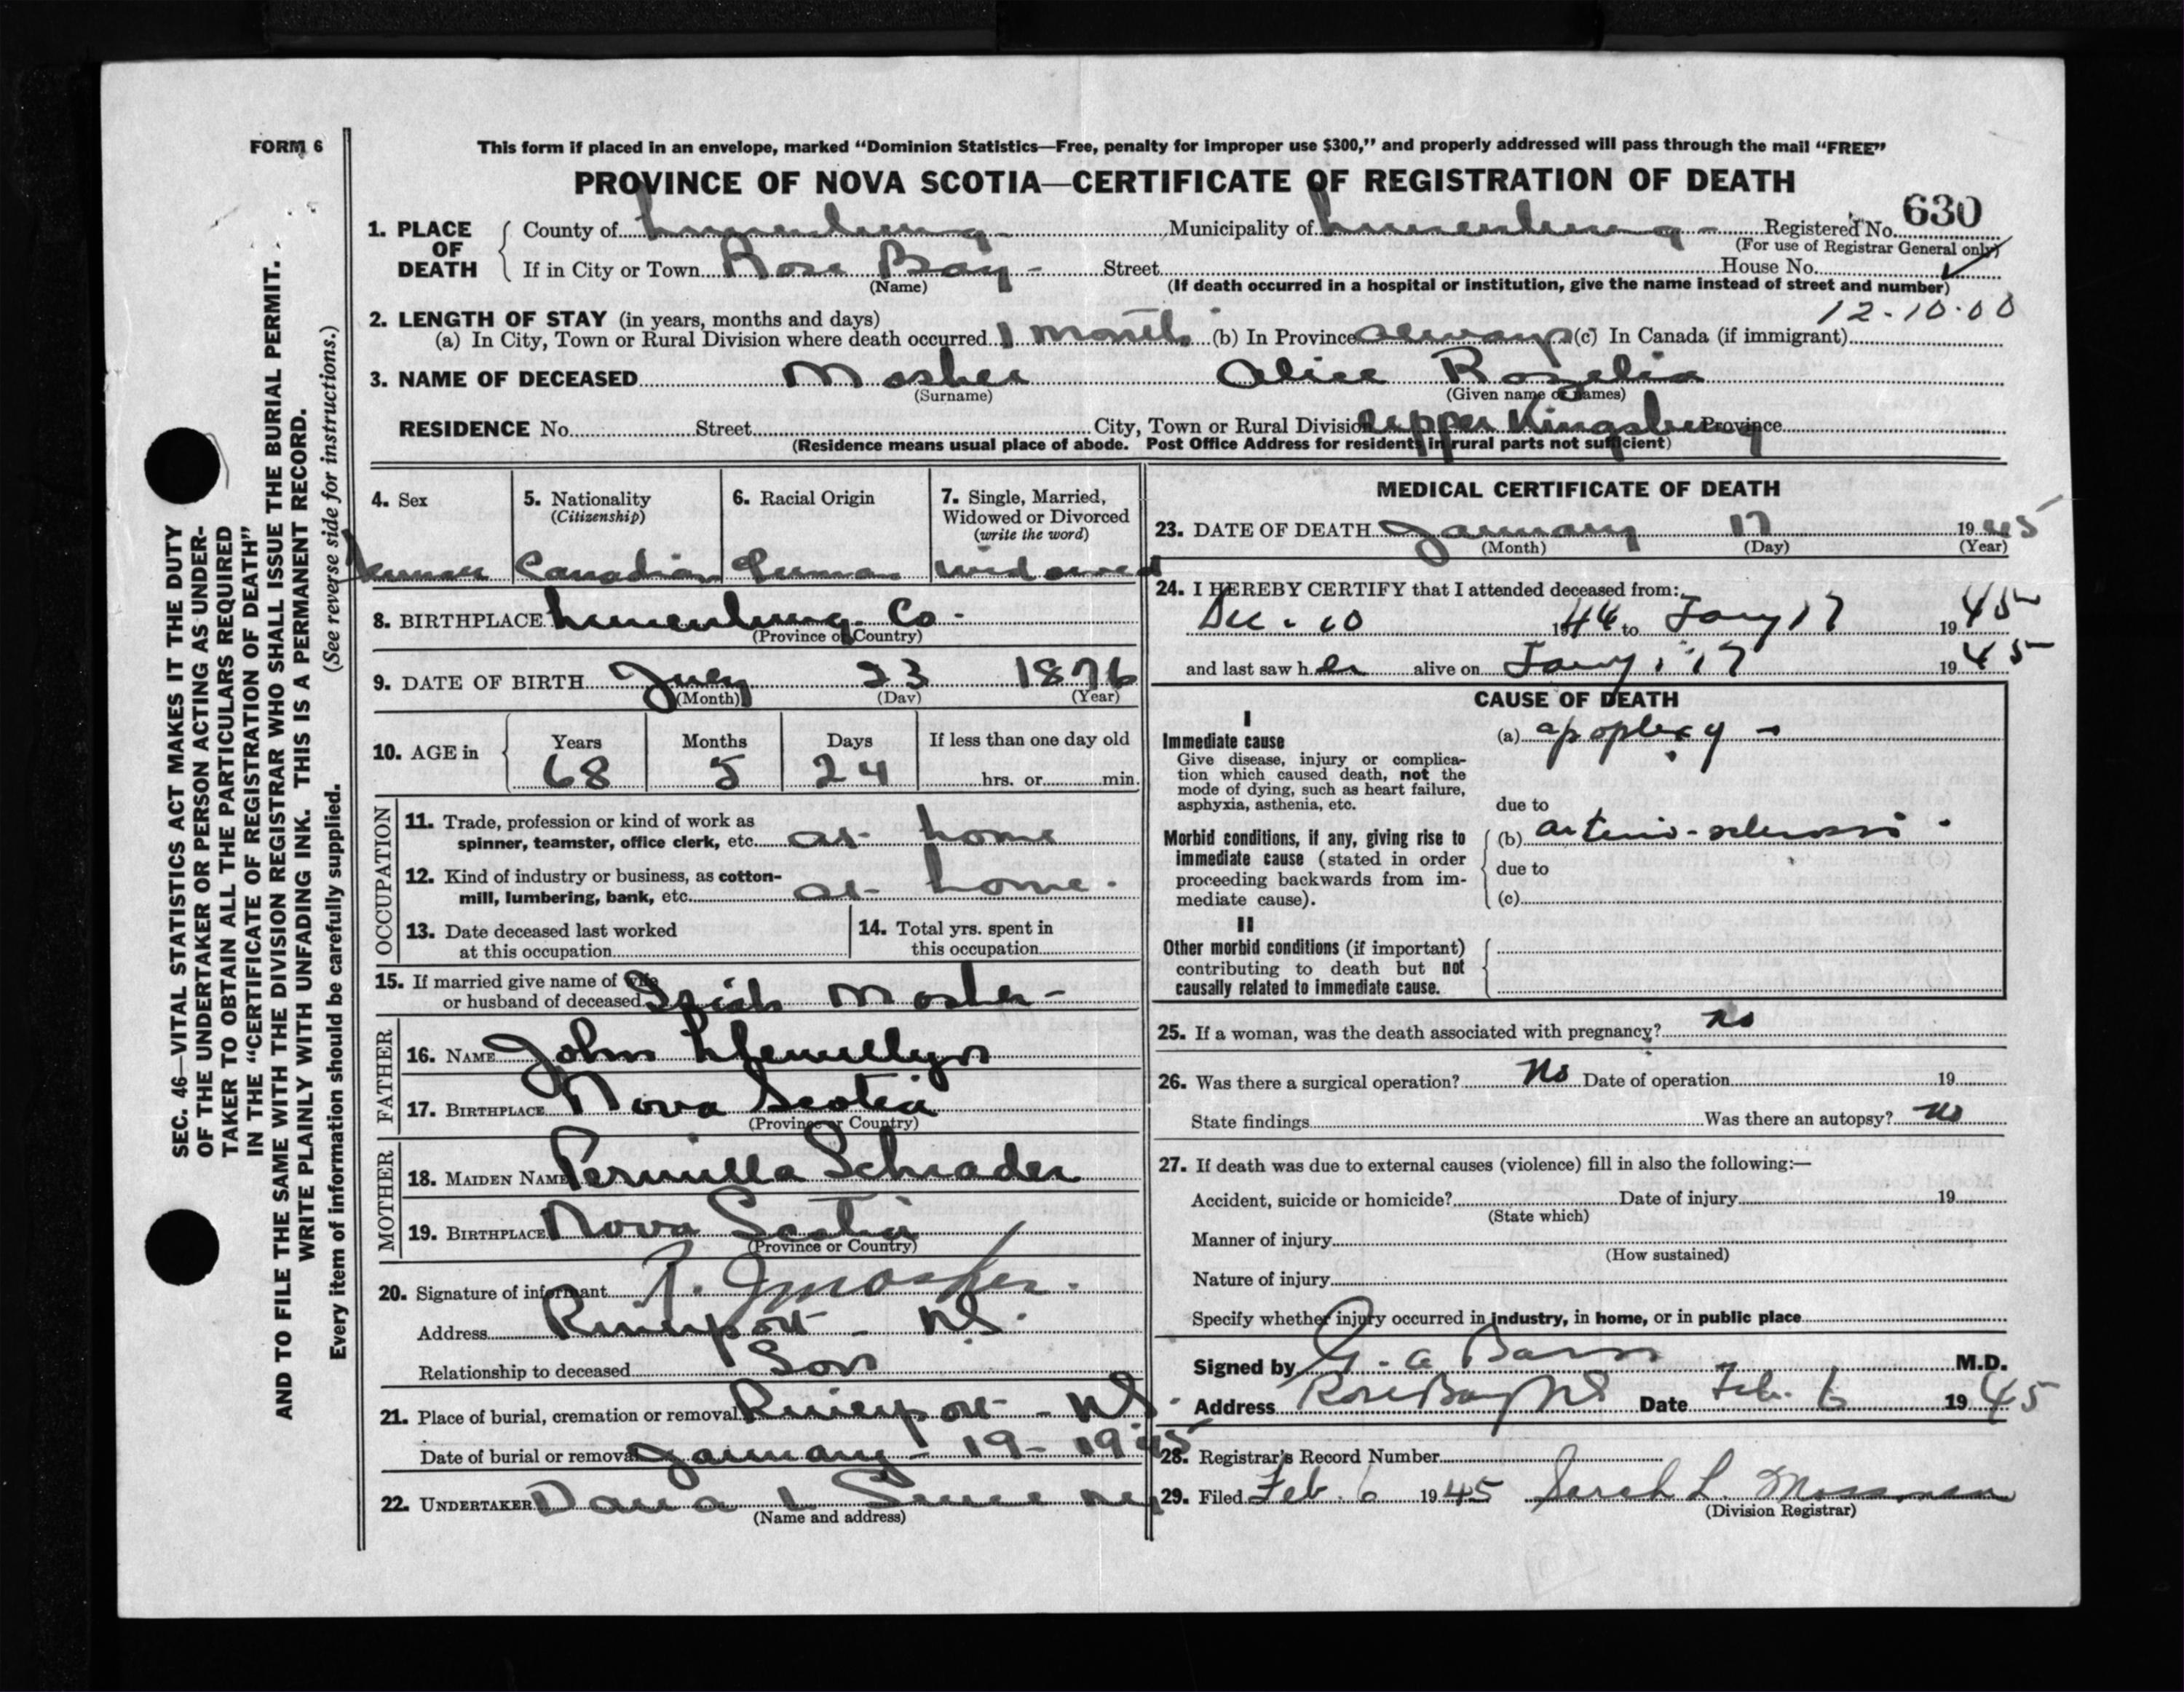 FORM 6
This form if placed in an envelope, marked “Dominion Statistics—Free, penalty for improper use $300,” and properly addressed will pass through the mail “FREE”
PROVINCE OF NOVA SCOTIA—CERTIFICATE OF REGISTRATION OF DEATH
630
1. PLACE OF DEATH { County of Lunenburg Municipality of Lunenburg Registered No.
(For use of Registrar General only)
If in City or Town Rose Bay - Street House No.
(Name) (If death occurred in a hospital or institution, give the name instead of street and number)
12-10-00
2. LENGTH OF STAY (in years, months and days)
(a) In City, Town or Rural Division where death occurred 1 month (b) In Province always (c) In Canada (if immigrant)
3. NAME OF DECEASED Mosher Alice Rozelia
(Surname) (Given name or names)
RESIDENCE No. Street City, Town or Rural Division Upper Kingsburg Province
(Residence means usual place of abode. Post Office Address for residents in rural parts not sufficient)
4. Sex
5. Nationality (Citizenship) Canadian
6. Racial Origin German
7. Single, Married, Widowed or Divorced (write the word) widowed
8. BIRTHPLACE Lunenburg Co -
(Province or Country)
9. DATE OF BIRTH July 23 1876
(Month) (Day) (Year)
10. AGE in { Years Months Days If less than one day old
68 5 24 hrs. or min.
OCCUPATION
11. Trade, profession or kind of work as
spinner, teamster, office clerk, etc. at home
12. Kind of industry or business, as cotton-
mill, lumbering, bank, etc. at home.
13. Date deceased last worked
at this occupation
14. Total yrs. spent in
this occupation
15. If married give name of wife
or husband of deceased Isiah Mosher -
FATHER
16. NAME John Llewellyn
17. BIRTHPLACE Nova Scotia
(Province or Country)
MOTHER
18. MAIDEN NAME Permilla Schrader
19. BIRTHPLACE Nova Scotia
(Province or Country)
20. Signature of informant Mosher.
Address Riverport - N.S.
Relationship to deceased Son
21. Place of burial, cremation or removal Riverport - N.S.
Date of burial or removal January - 19 - 1945
22. UNDERTAKER L
(Name and address)
MEDICAL CERTIFICATE OF DEATH
23. DATE OF DEATH January 17 1945
(Month) (Day) (Year)
24. I HEREBY CERTIFY that I attended deceased from:
Dec - 10 1944 to Jany 17 1945
and last saw her alive on Jany. 17 1945
CAUSE OF DEATH
I
Immediate cause
Give disease, injury or complica-
tion which caused death, not the
mode of dying, such as heart failure,
asphyxia, asthenia, etc.
(a) apoplexy -
due to
Morbid conditions, if any, giving rise to
immediate cause (stated in order
proceeding backwards from im-
mediate cause).
(b) arterio-sclerosis -
due to
(c)
II
Other morbid conditions (if important)
contributing to death but not
causally related to immediate cause.
25. If a woman, was the death associated with pregnancy? no
26. Was there a surgical operation? No Date of operation 19
State findings Was there an autopsy? no
27. If death was due to external causes (violence) fill in also the following:—
Accident, suicide or homicide? Date of injury 19
(State which)
Manner of injury
(How sustained)
Nature of injury
Specify whether injury occurred in industry, in home, or in public place
Signed by G. A. Barss M.D.
Address Rose Bay NS Date Feb. 6 1945
28. Registrar's Record Number
29. Filed Feb. 6 1945 Sarah L. Mossman
(Division Registrar)
SEC. 46—VITAL STATISTICS ACT MAKES IT THE DUTY
OF THE UNDERTAKER OR PERSON ACTING AS UNDER-
TAKER TO OBTAIN ALL THE PARTICULARS REQUIRED
IN THE “CERTIFICATE OF REGISTRATION OF DEATH”
AND TO FILE THE SAME WITH THE DIVISION REGISTRAR WHO SHALL ISSUE THE BURIAL PERMIT.
WRITE PLAINLY WITH UNFADING INK. THIS IS A PERMANENT RECORD.
Every item of information should be carefully supplied. (See reverse side for instructions.)